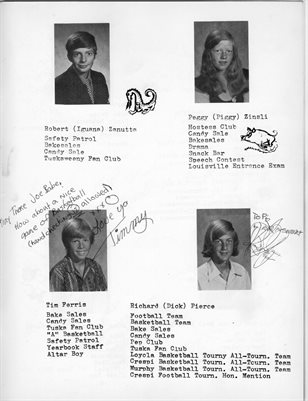 Robert (Iguana) Zanutto
Safety Patrol
Bakesales
Candy Sale
Tuskaweeny Fan Club
Peggy (Piggy) Zinsli
Hostess Club
Candy Sale
Bakesales
Drama
Snack Bar
Speech Contest
Louisville Entrance Exam
Hey There Joe Babe,
How about a nice
game of basketball
allowed)
Love ya
Timmy
To
Tim Ferris
Bake Sales
Candy Sales
Tuska Fan Club
"A" Basketball
Safety Patrol
Yearbook Staff
Altar Boy
Richard (Dick) Pierce
Football Team
Basketball Team
Bake Sales
Candy Sales
Pep Club
Tuska Fan Club
Loyola Basketball Tourny All-Tourn. Team
Crespi Basketball Tourn. All-Tourn. Team
Murphy Basketball Tourn. All-Tourn. Team
Crespi Football Tourn. Hon. Mention